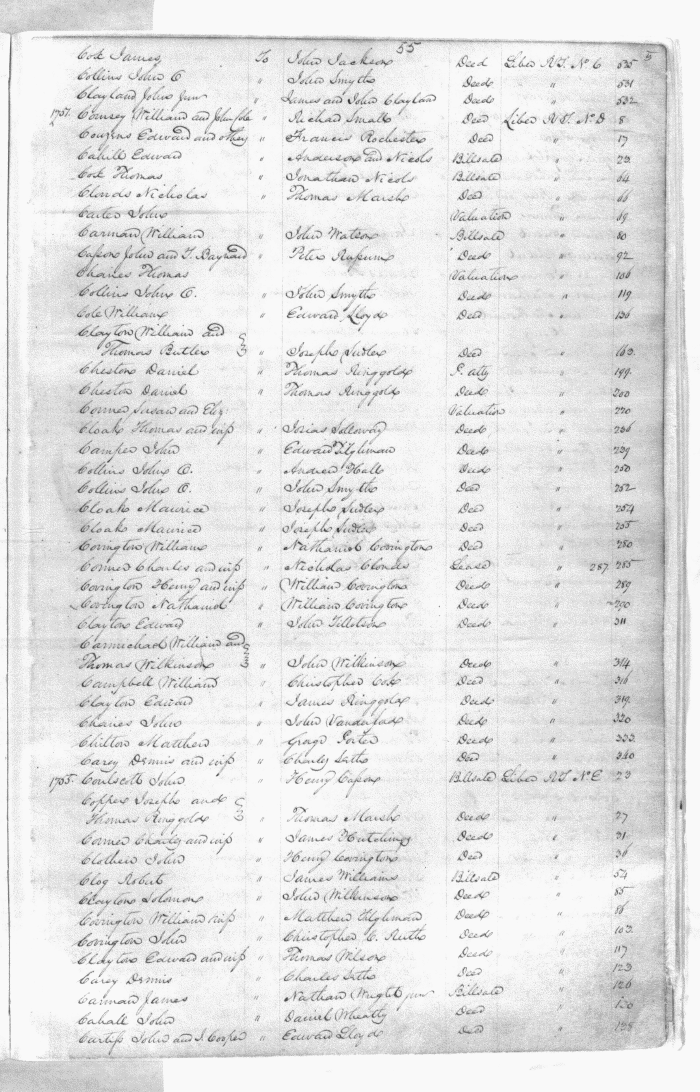 55
5
Cox James To John Jackson Deed Liber R.T. No C 525
Collins John C " John Smyth Deed " 531
Clayland John Junr " James and John Clayland Deed " 532
1751. Coursey William and John " Richard Small Deed Liber R.T. No D 8
Couzens Edward and others " Francis Rochester Deed " 17
Cahill Edward " Anderson and Nicols Billsale " 23
Cox Thomas " Jonathan Nicols Billsale " 64
Clouds Nicholas " Thomas Marsh Deed " 66
Carter John Valuation " 69
Carman William " John Watson Billsale " 80
Capon John and T. Baynard " Peter Deed " 92
Chaires Thomas Valuation " 106
Collins John C. " John Smyth Deed " 119
Cole William " Edward Lloyd Deed " 136
Clayton William and
Thomas Butler " Joseph Sudler Deed " 163
Cheston Daniel " Thomas Ringgold P. atty " 199
Cheston Daniel " Thomas Ringgold Deed " 200
Conner Susan and Eliz: Valuation " 220
Cloak Thomas and wife " Josias Deed " 236
Camper John " Edward Tilghman Deed " 239
Collins John C. " Andrew Hall Deed " 250
Collins John C. " John Smyth Deed " 252
Cloak Maurice " Joseph Sudler Deed " 254
Cloak Maurice " Joseph Sudler Deed " 255
Covington William " Nathaniel Covington Deed " 280
Conner Charles and wife " Nicholas Clouds Lease " 287. 285
Covington Henry and wife " William Covington Deed " 289
Covington Nathaniel " William Covington Deed " 290
Clayton Edward " John Tillotson Deed " 311
Carmichael William and
Thomas Wilkinson " John Wilkinson Deed " 314
Campbell William " Christopher Cox Deed " 316
Clayton Edward " James Ringgold Deed " 319
Chaires John " John Vanderford Deed " 320
Chilton Matthew " George Porter Deed " 333
Carey Dennis and wife " Charles Seth Deed " 340
1755. Coulscott John " Henry Capon Billsale Liber R.T. No E 23
Copper Joseph and
Thomas Ringgold " Thomas Marsh Deed " 27
Conner Charles and wife " James Hutchings Deed " 31
Clothier John " Henry Covington Deed " 36
Clog Robert " James Williams Billsale " 54
Clayton Solomon " John Wilkinson Deed " 85
Covington William wife " Matthew Tilghman Deed " 86
Covington John " Christopher C. Ruth Deed " 103
Clayton Edward and wife " Thomas Wilson Deed " 117
Carey Dennis " Charles Seth Deed " 123
Carman James " Nathan Wright junr Billsale " 126
Cahall John " Daniel Wheatly Deed " 130
Curtiss John and J. Cooper " Edward Lloyd Deed " 138